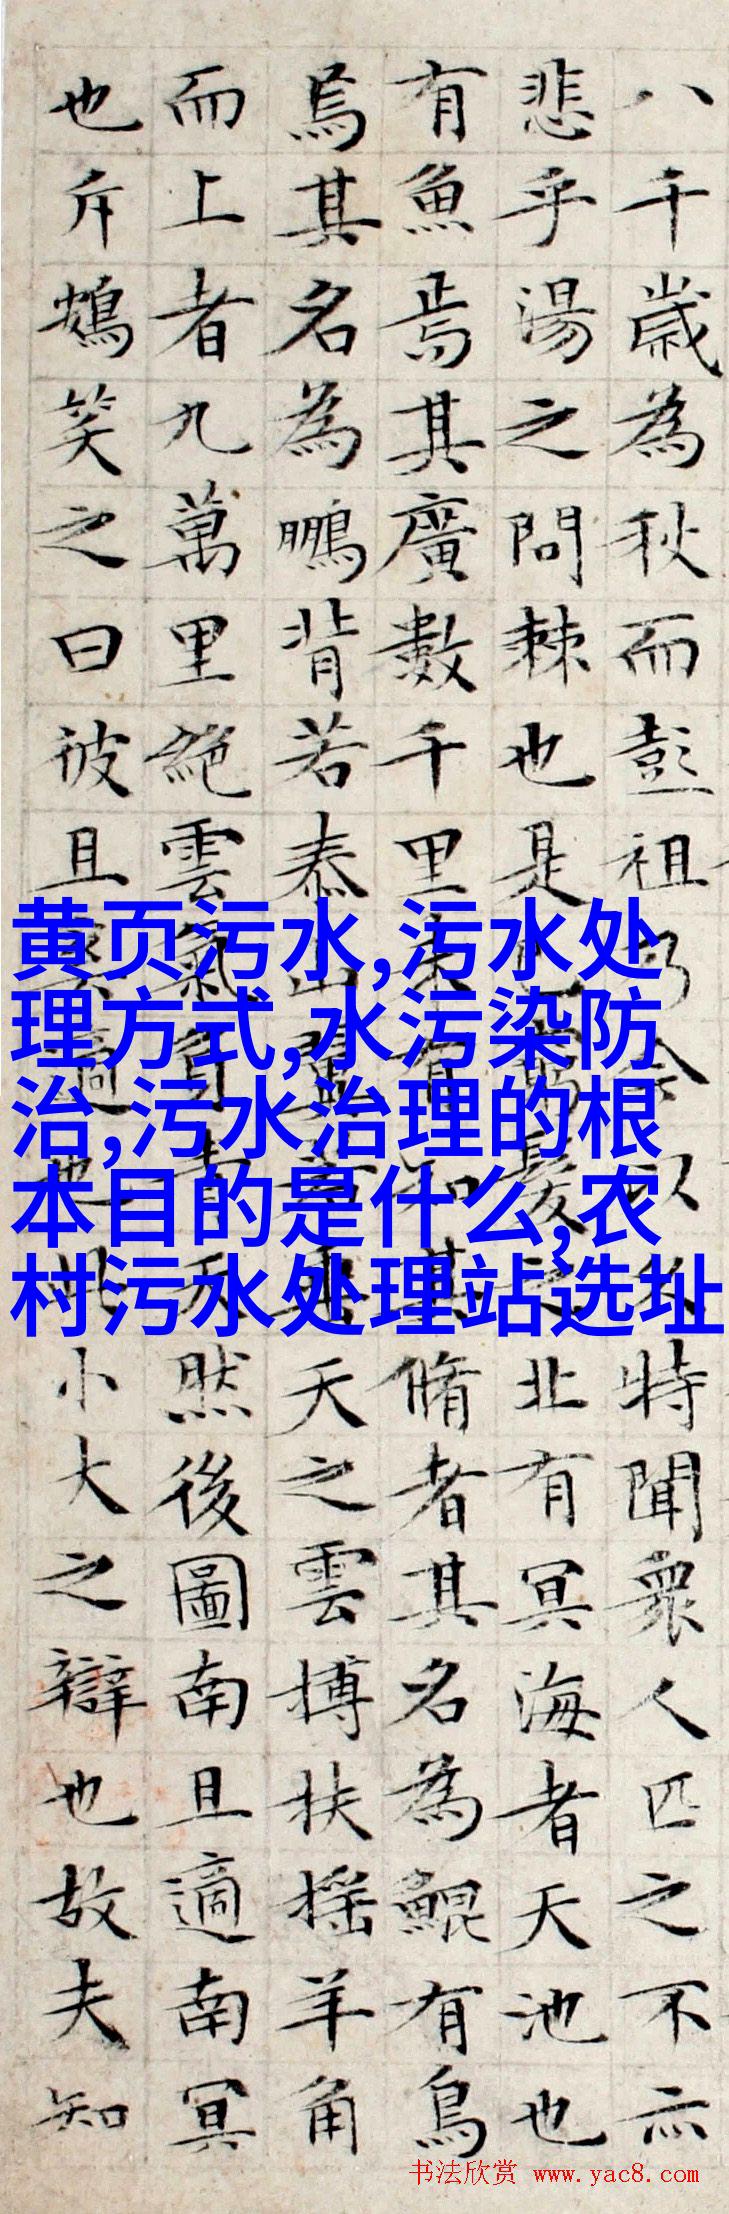 八千歲為秋而彭祖乃今以久特聞衆人匹之不亦
悲乎湯之問棘也是已窮髮之北有冥海者天池也
有魚焉其廣數千里未有知其脩者其名為鯤有鳥
焉其名為鵬背若泰山翼若垂天之雲搏扶摇羊角
而上者九萬里絶雲氣負青天然後圖南且適南冥
也斥鴳笑之曰彼且奚適也此小大之辯也故夫知
黄页污水,污水处
理方式,水污染防
治,污水治理的根
本目的是什么,农
村污水处理站选址
书法欣赏 www.yac8.com